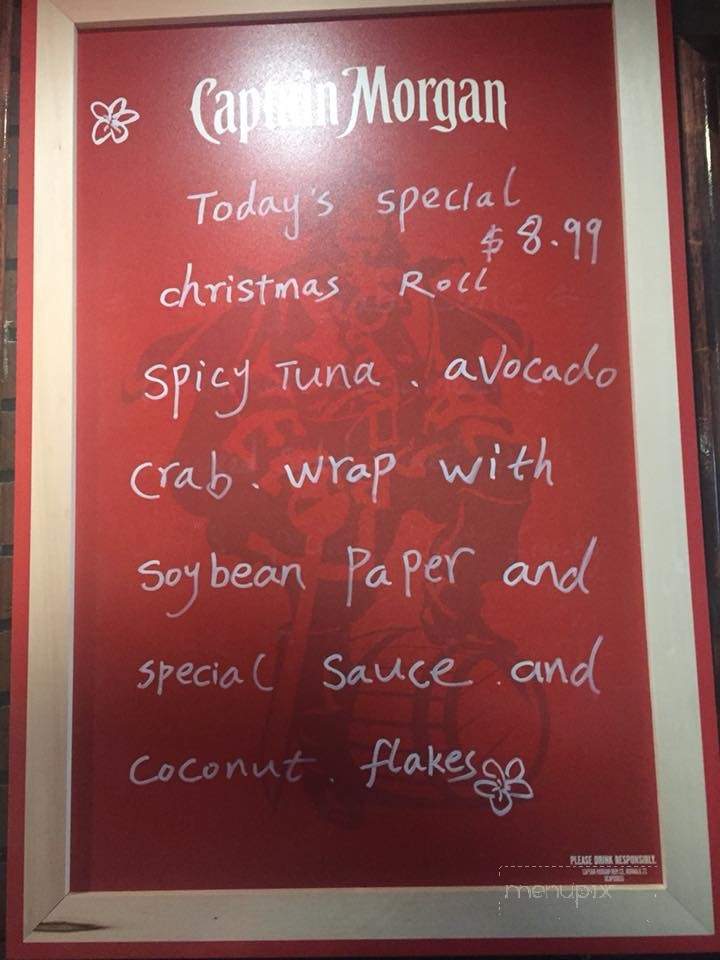 Captain Morgan
Today's special
$8.99
christmas Roll
spicy Tuna . avocado
crab . wrap with
soybean paper and
special sauce . and
coconut . flakes
PLEASE DRINK RESPONSIBLY.
menupix